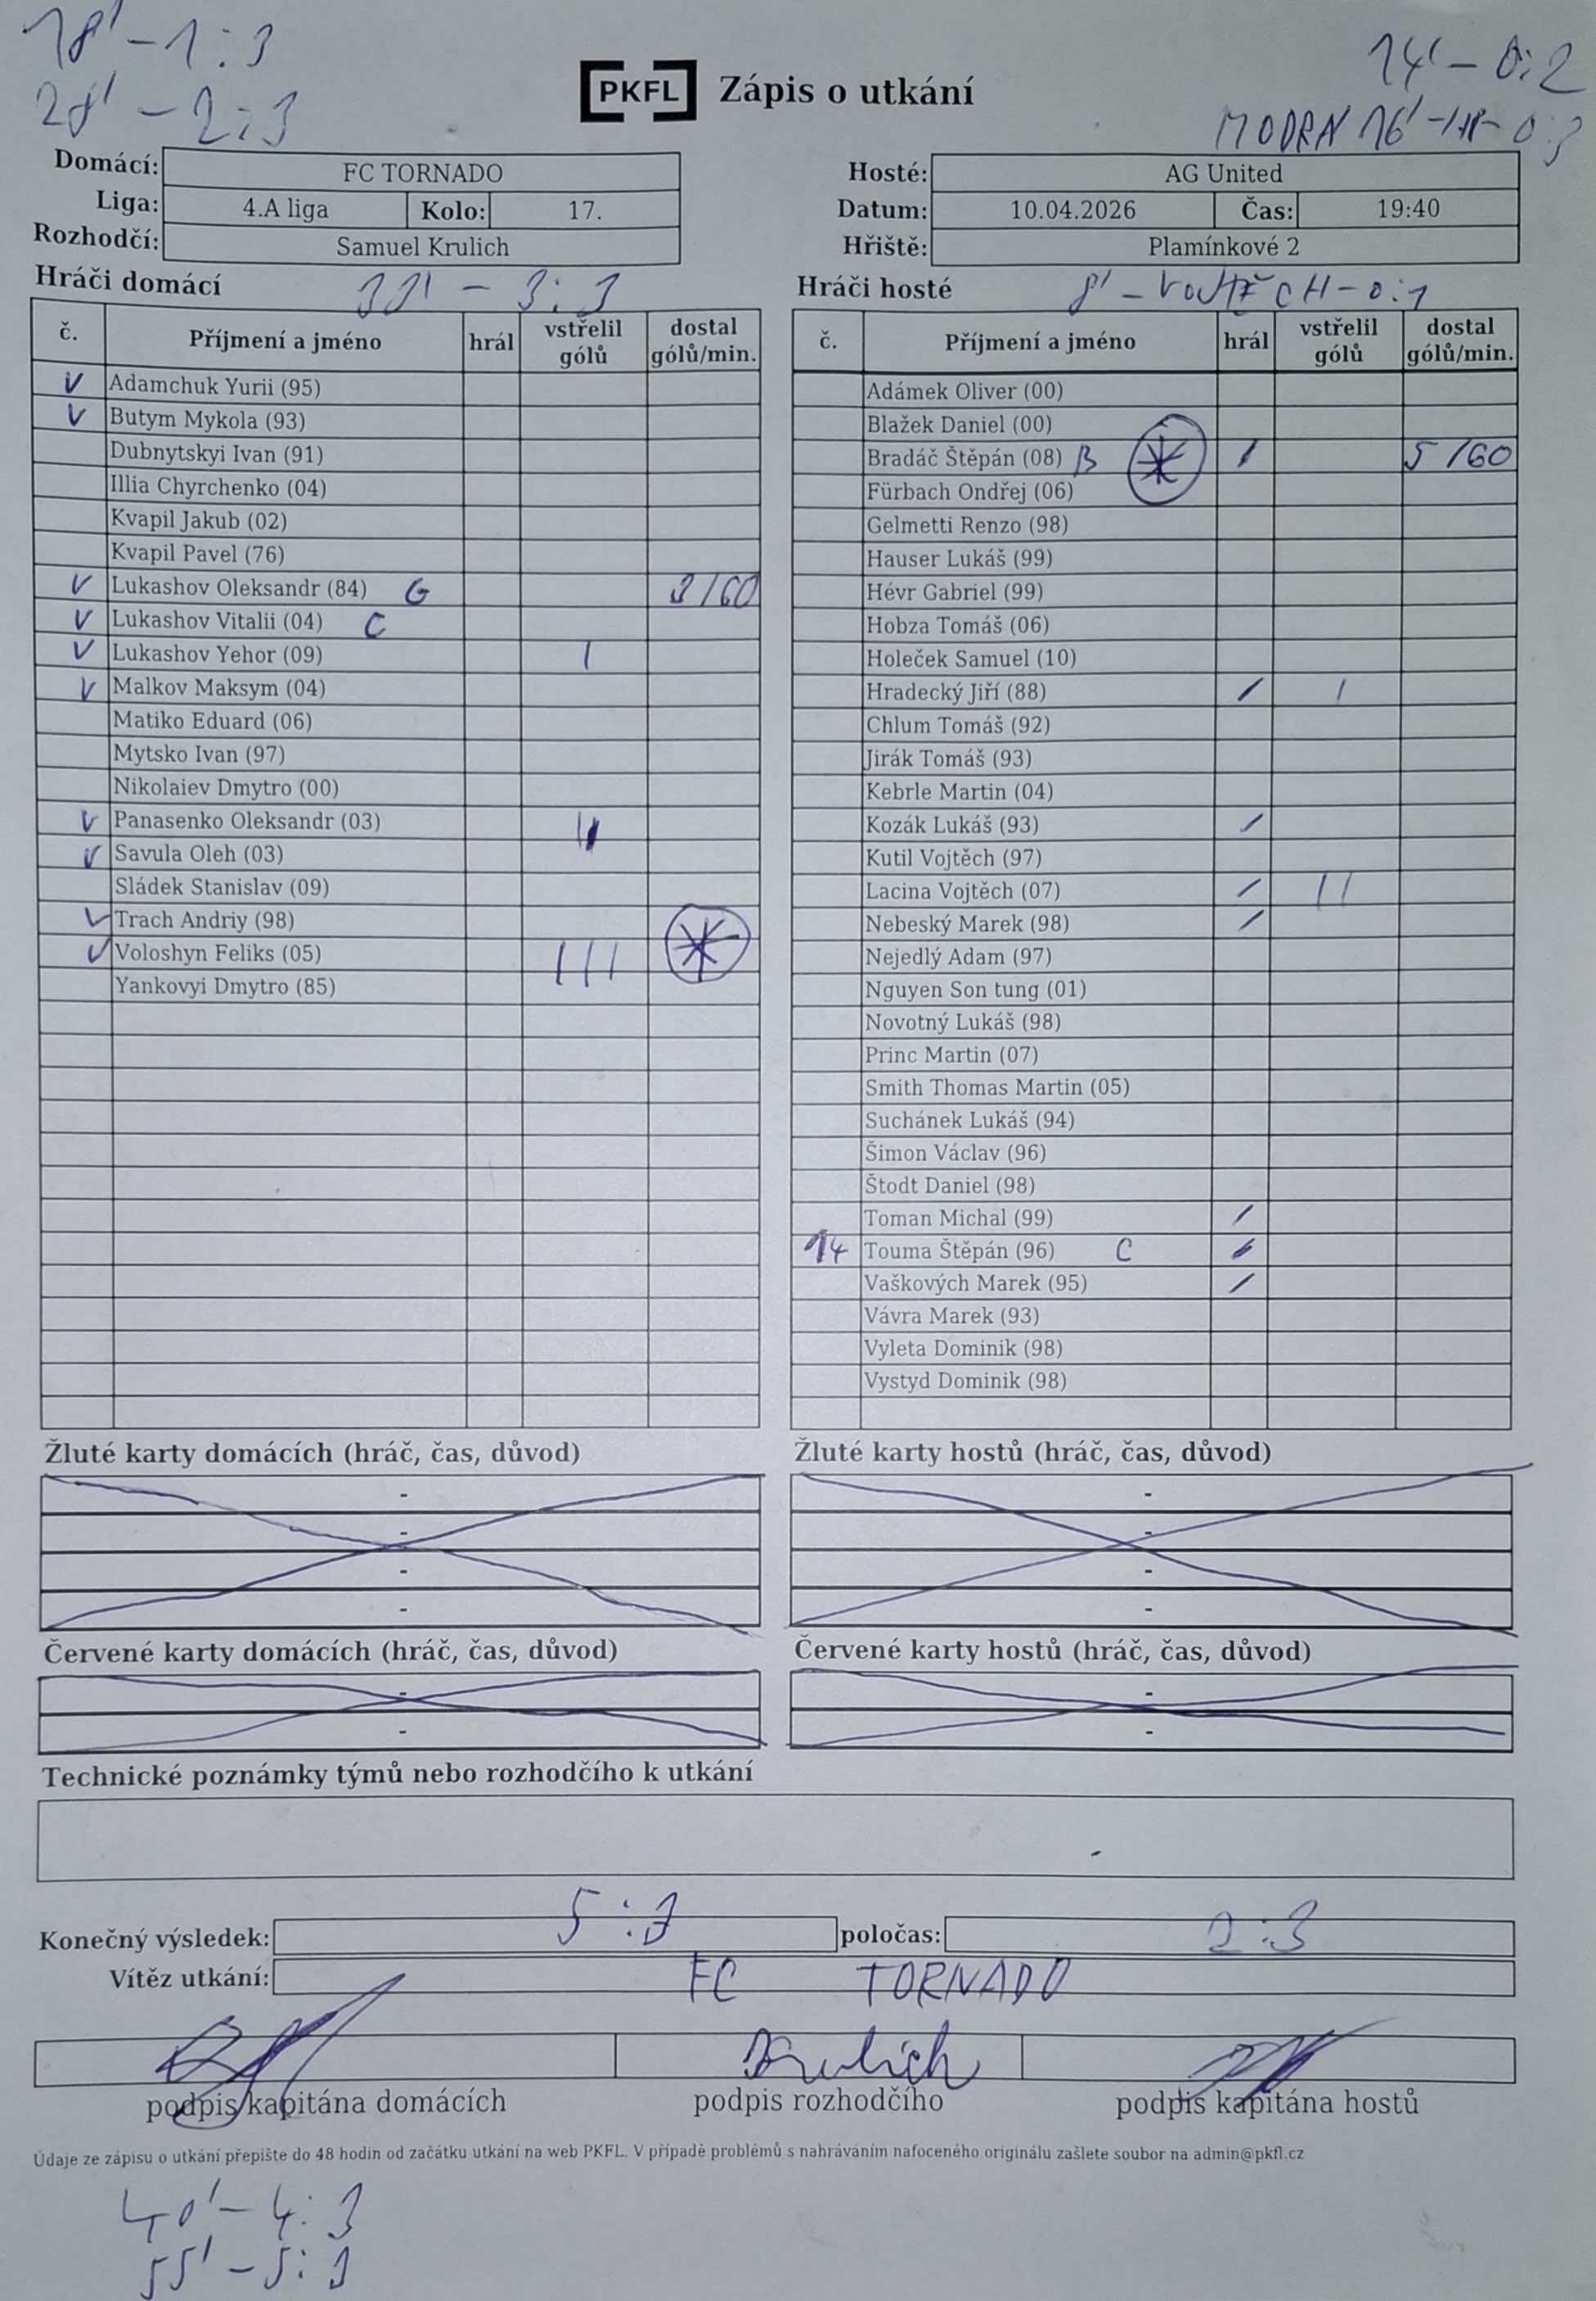 18' - 1:3
28' - 2:3
14' - 0:2
MODRÁ 16' - 0:3
PKFL Zápis o utkání
Domácí: FC TORNADO
Liga: 4.A liga Kolo: 17.
Rozhodčí: Samuel Krulich
Hosté: AG United
Datum: 10.04.2026 Čas: 19:40
Hřiště: Plamínkové 2
Hráči domácí 33' - 3:3
č. Příjmení a jméno hrál vstřelil gólů dostal gólů/min.
V Adamchuk Yurii (95)
V Butym Mykola (93)
Dubnytskyi Ivan (91)
Illia Chyrchenko (04)
Kvapil Jakub (02)
Kvapil Pavel (76)
V Lukashov Oleksandr (84) G 3/60
V Lukashov Vitalii (04) C
V Lukashov Yehor (09) I
V Malkov Maksym (04)
Matiko Eduard (06)
Mytsko Ivan (97)
Nikolaiev Dmytro (00)
V Panasenko Oleksandr (03)
V Savula Oleh (03)
Sládek Stanislav (09)
V Trach Andriy (98)
V Voloshyn Feliks (05) III *
Yankovyi Dmytro (85)
Hráči hosté 8' - VOJTĚCH - 0:1
č. Příjmení a jméno hrál vstřelil gólů dostal gólů/min.
Adámek Oliver (00)
Blažek Daniel (00)
Bradáč Štěpán (08) B * / 5/60
Fürbach Ondřej (06)
Gelmetti Renzo (98)
Hauser Lukáš (99)
Hévr Gabriel (99)
Hobza Tomáš (06)
Holeček Samuel (10)
Hradecký Jiří (88) / I
Chlum Tomáš (92)
Jirák Tomáš (93)
Kebrle Martin (04)
Kozák Lukáš (93) /
Kutil Vojtěch (97)
Lacina Vojtěch (07) / II
Nebeský Marek (98) /
Nejedlý Adam (97)
Nguyen Son tung (01)
Novotný Lukáš (98)
Princ Martin (07)
Smith Thomas Martin (05)
Suchánek Lukáš (94)
Šimon Václav (96)
Štodt Daniel (98)
Toman Michal (99) /
14 Touma Štěpán (96) C /
Vaškových Marek (95) /
Vávra Marek (93)
Vyleta Dominik (98)
Vystyd Dominik (98)
Žluté karty domácích (hráč, čas, důvod)
-
-
-
-
Žluté karty hostů (hráč, čas, důvod)
-
-
-
-
Červené karty domácích (hráč, čas, důvod)
-
-
Červené karty hostů (hráč, čas, důvod)
-
-
Technické poznámky týmů nebo rozhodčího k utkání
Konečný výsledek: 5:3 poločas: 2:3
Vítěz utkání: FC TORNADO
Krulich
podpis kapitána domácích podpis rozhodčího podpis kapitána hostů
Údaje ze zápisu o utkání přepište do 48 hodin od začátku utkání na web PKFL. V případě problémů s nahráváním nafoceného originálu zašlete soubor na admin@pkfl.cz
40' - 4:3
55' - 5:3